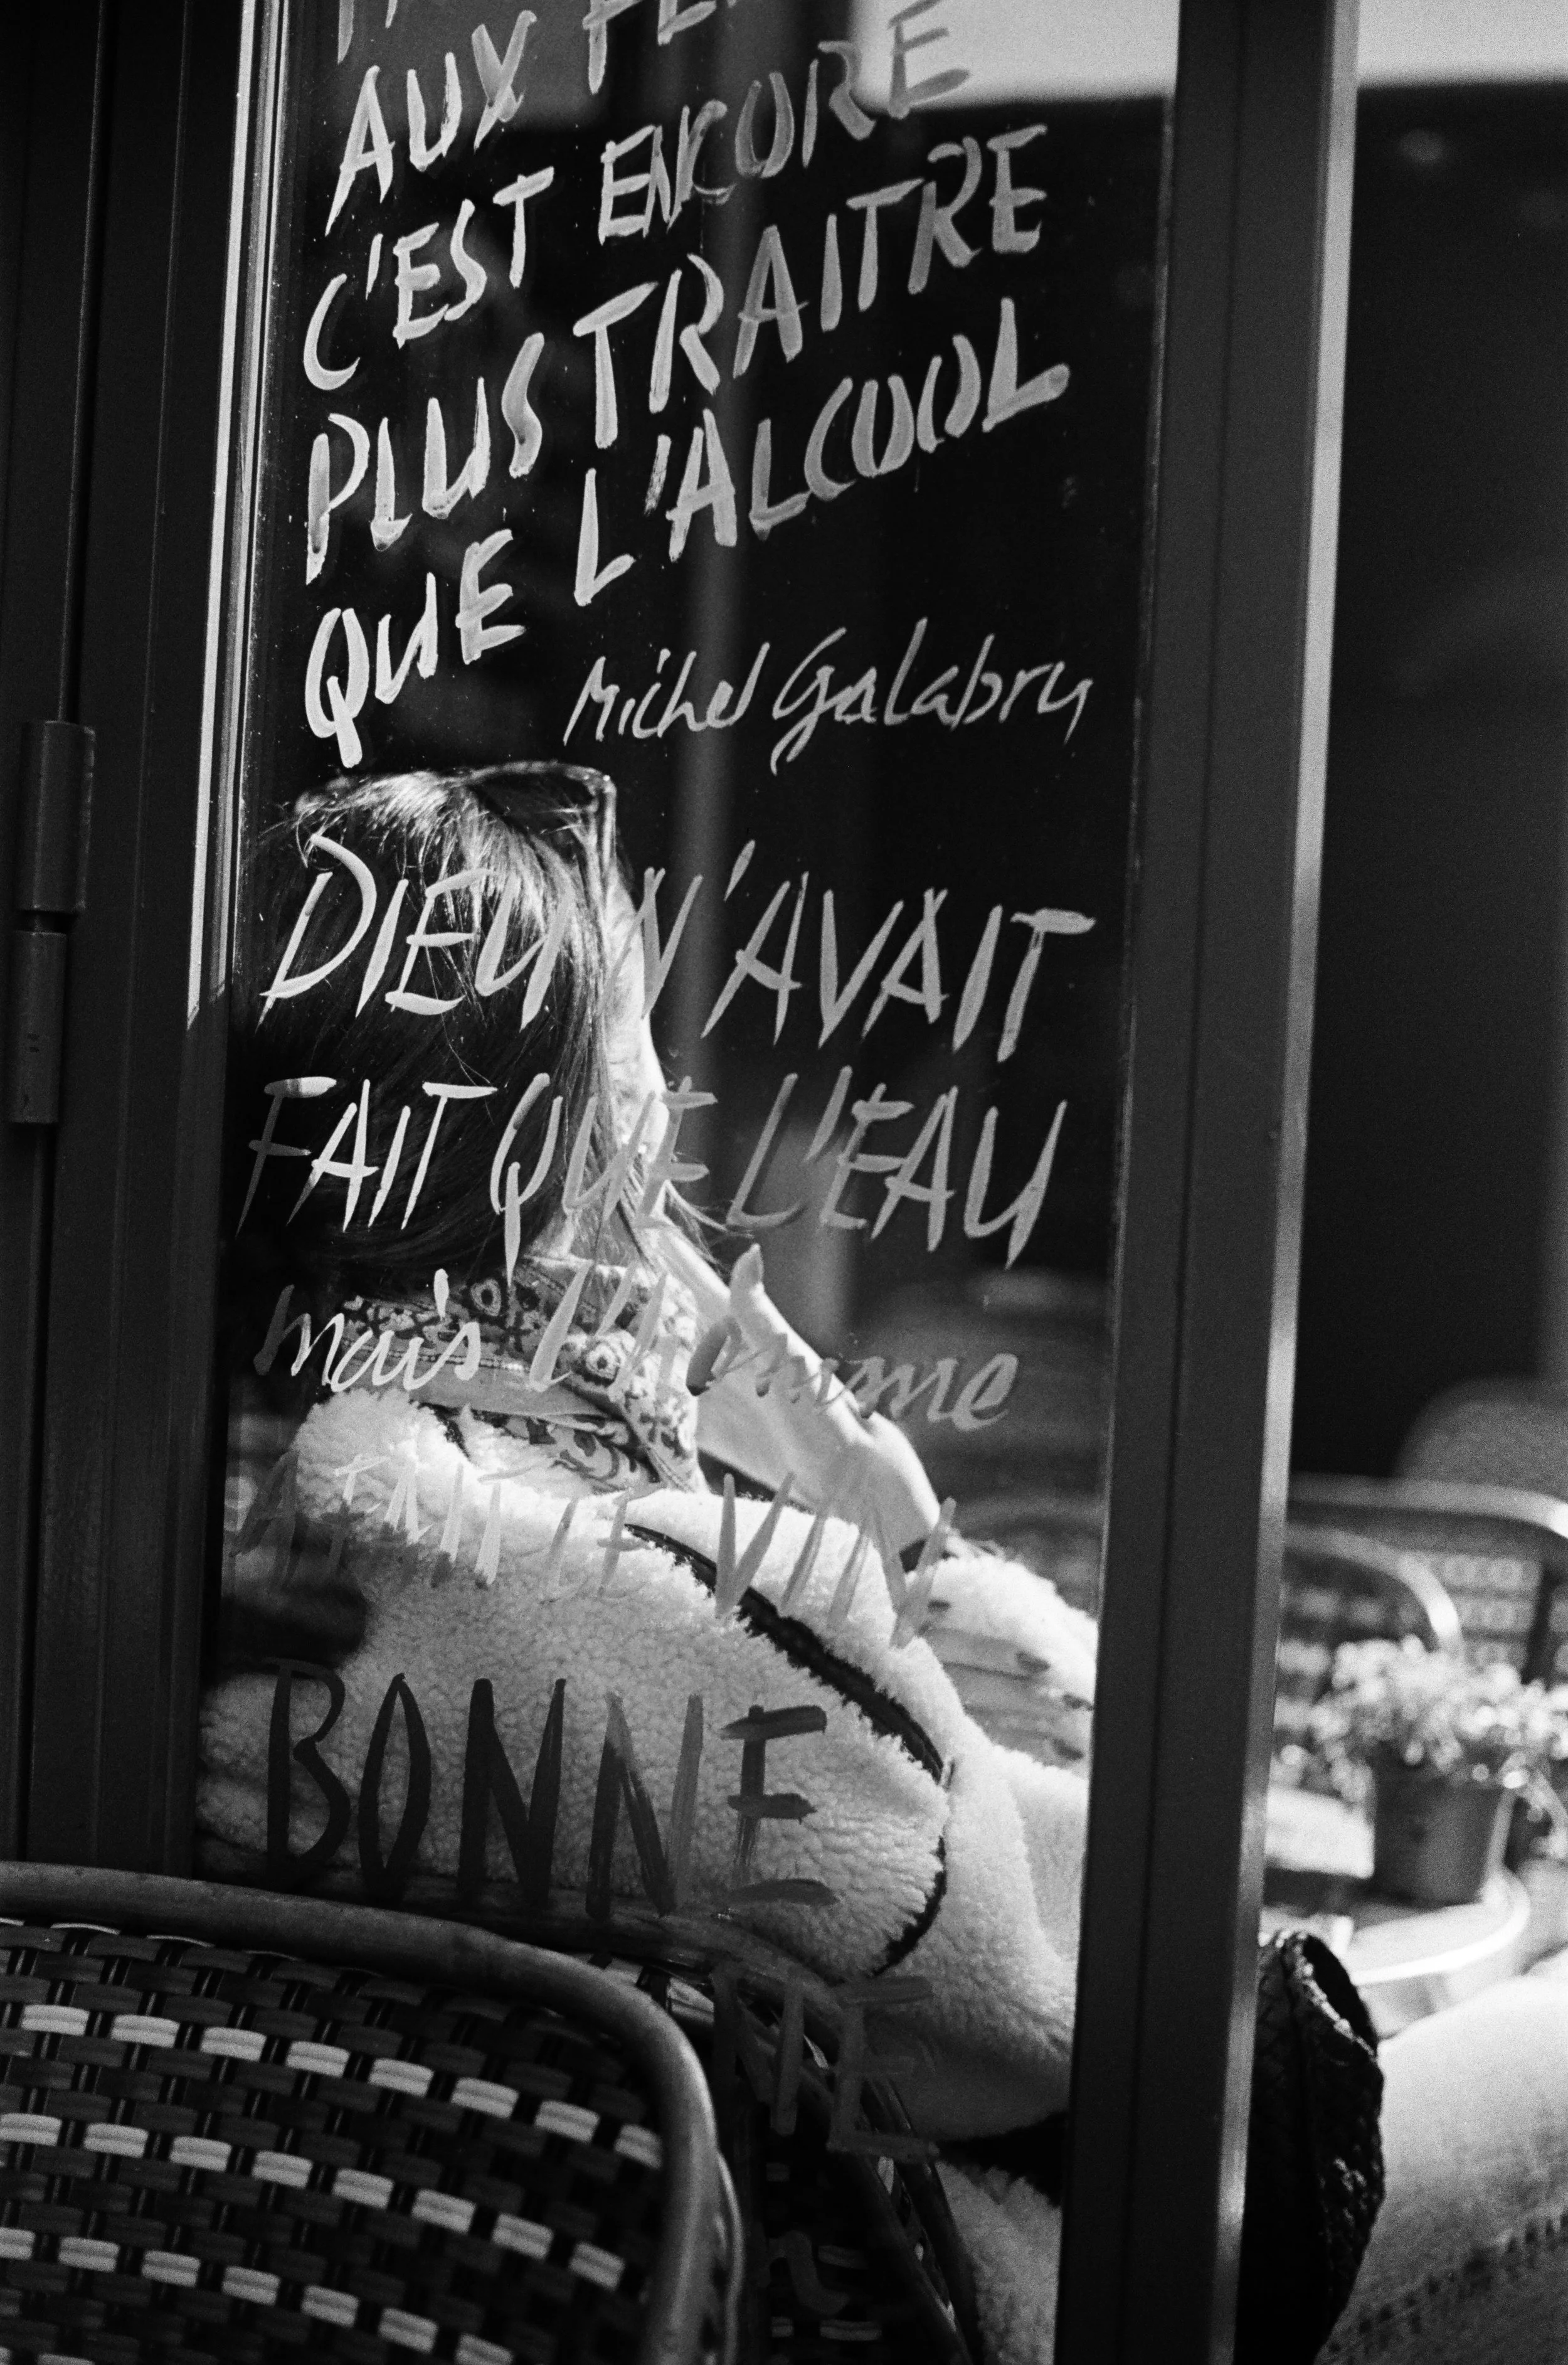 AUX
C'EST ENCORE
PLUS TRAITRE
QUE L'ALCOOL
Michel Galabru
DIEU N'AVAIT
FAIT QUE L'EAU
mais l'Homme
A FAIT LE VIN
BONNE